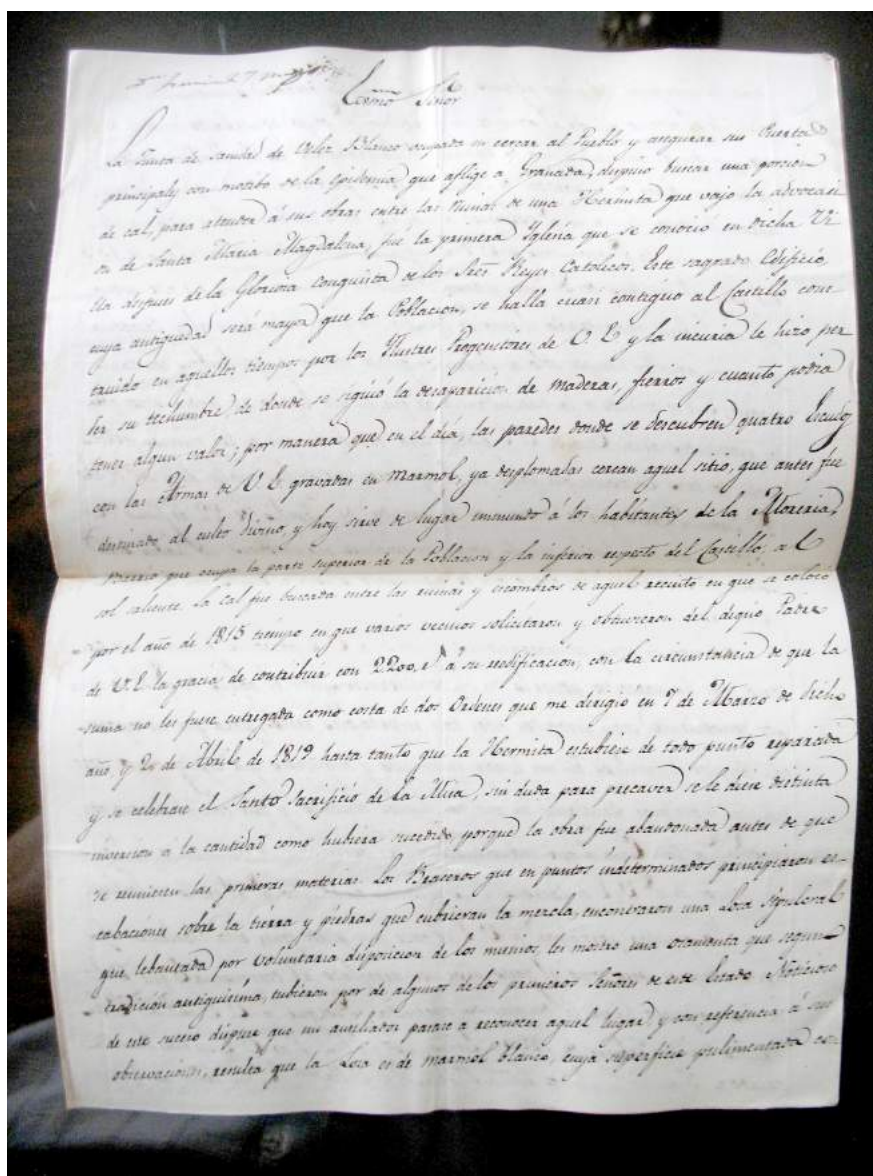 Exmo Señor
La Junta de sanidad de Velez Blanco ocupada en cercar al Pueblo y asegurar sus Puertas
principales con motibo de la epidemia que aflige a Granada, dispuso buscar una porcion
de cal, para atender á sus obras entre las ruinas de una Hermita que vajo la advocasi
on de Santa Maria Magdalena, fué la primera Yglesia que se conoció en dicha Vi
lla despues de la Gloriosa conquista de los Señs Reyes Catolicos. Este sagrado Edificio,
cuya antiguedad será mayor que la Poblacion, se halla cuasi contiguo al Castillo cons
truido en aquellos tiempos por los Ilustres Progenitores de V. E. y la incuria le hizo per
der su techumbre, de donde se siguió la desaparicion de maderas, fierros y cuanto podia
tener algun valor; por manera que en el dia, las paredes donde se descubren quatro Escudos
con las Armas de V. E. gravadas en marmol, ya desplomadas cercan aquel sitio, que antes fue
destinado al culto Divino, y hoy sirve de lugar inmundo á los habitantes de la Moreria,
Barrio que ocupa la parte superior de la Poblacion y la inferior respecto del Castillo, al
sol saliente. La cal fue buscada entre las ruinas y escombros de aquel recinto en que se colocó
por el año de 1815 tiempo en que varios vecinos solicitaron y obtuvieron del digno Padre
de V. E. la gracia de contribuir con 2200 rs á su reedificación, con la circunstancia de que la
suma no les fuese entregada como costa de dos Ordenes que me dirigio en 7 de Marzo de dicho
año, y 2 de Abril de 1819 hasta tanto que la Hermita estubiese de todo punto reparada
y se celebrase el Santo Sacrificio de la Misa, sin duda para precaver se le diese distinta
inversion a la cantidad como hubiera sucedido, porque la obra fue abandonada antes de que
se reuniesen las primeras materias. Los Braceros que en puntos indeterminados principiaron es-
cabaciones sobre la tierra y piedras que cubrieran la mezcla, encontraron una Losa sepulcral
que lebantada por voluntaria disposicion de los mismos, les mostro una osamenta que segun
tradición antiguisima, tubieron por de algunos de los primeros Señores de este Estado. Noticioso
de este suceso dispuse que mi auxiliador pasase a reconocer aquel lugar y con referencia á sus
observaciones, resulta que la Losa es de marmol blanco, cuya superficie pulimentada es-